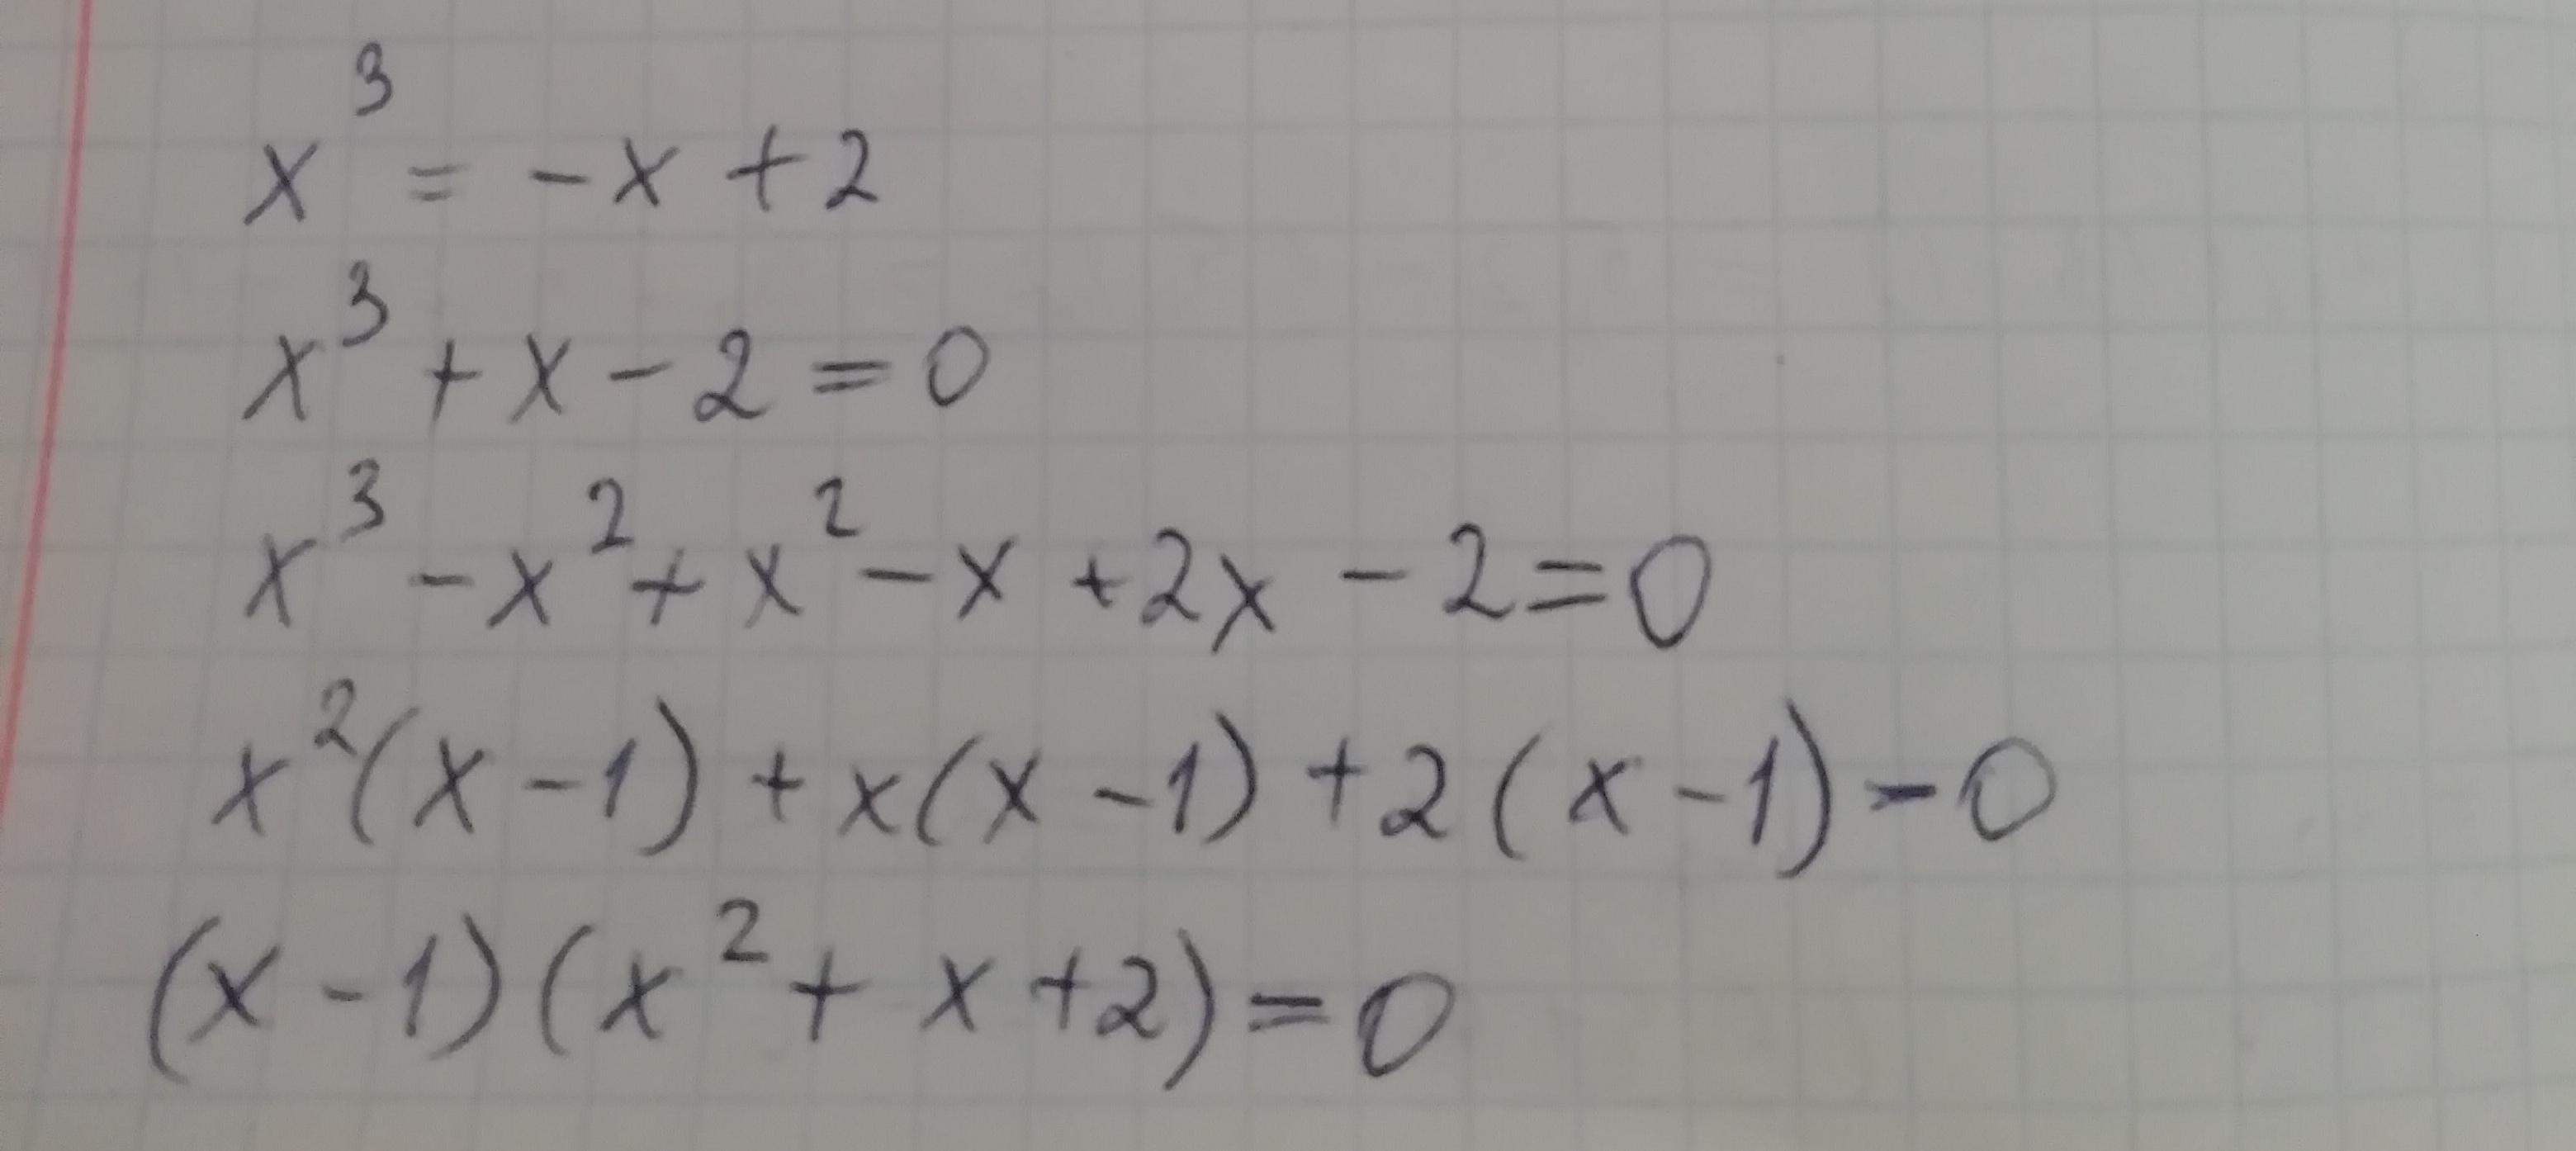 x³ = -x + 2
x³ + x - 2 = 0
x³ - x² + x² - x + 2x - 2 = 0
x²(x - 1) + x(x - 1) + 2(x - 1) - 0
(x - 1)(x² + x + 2) = 0